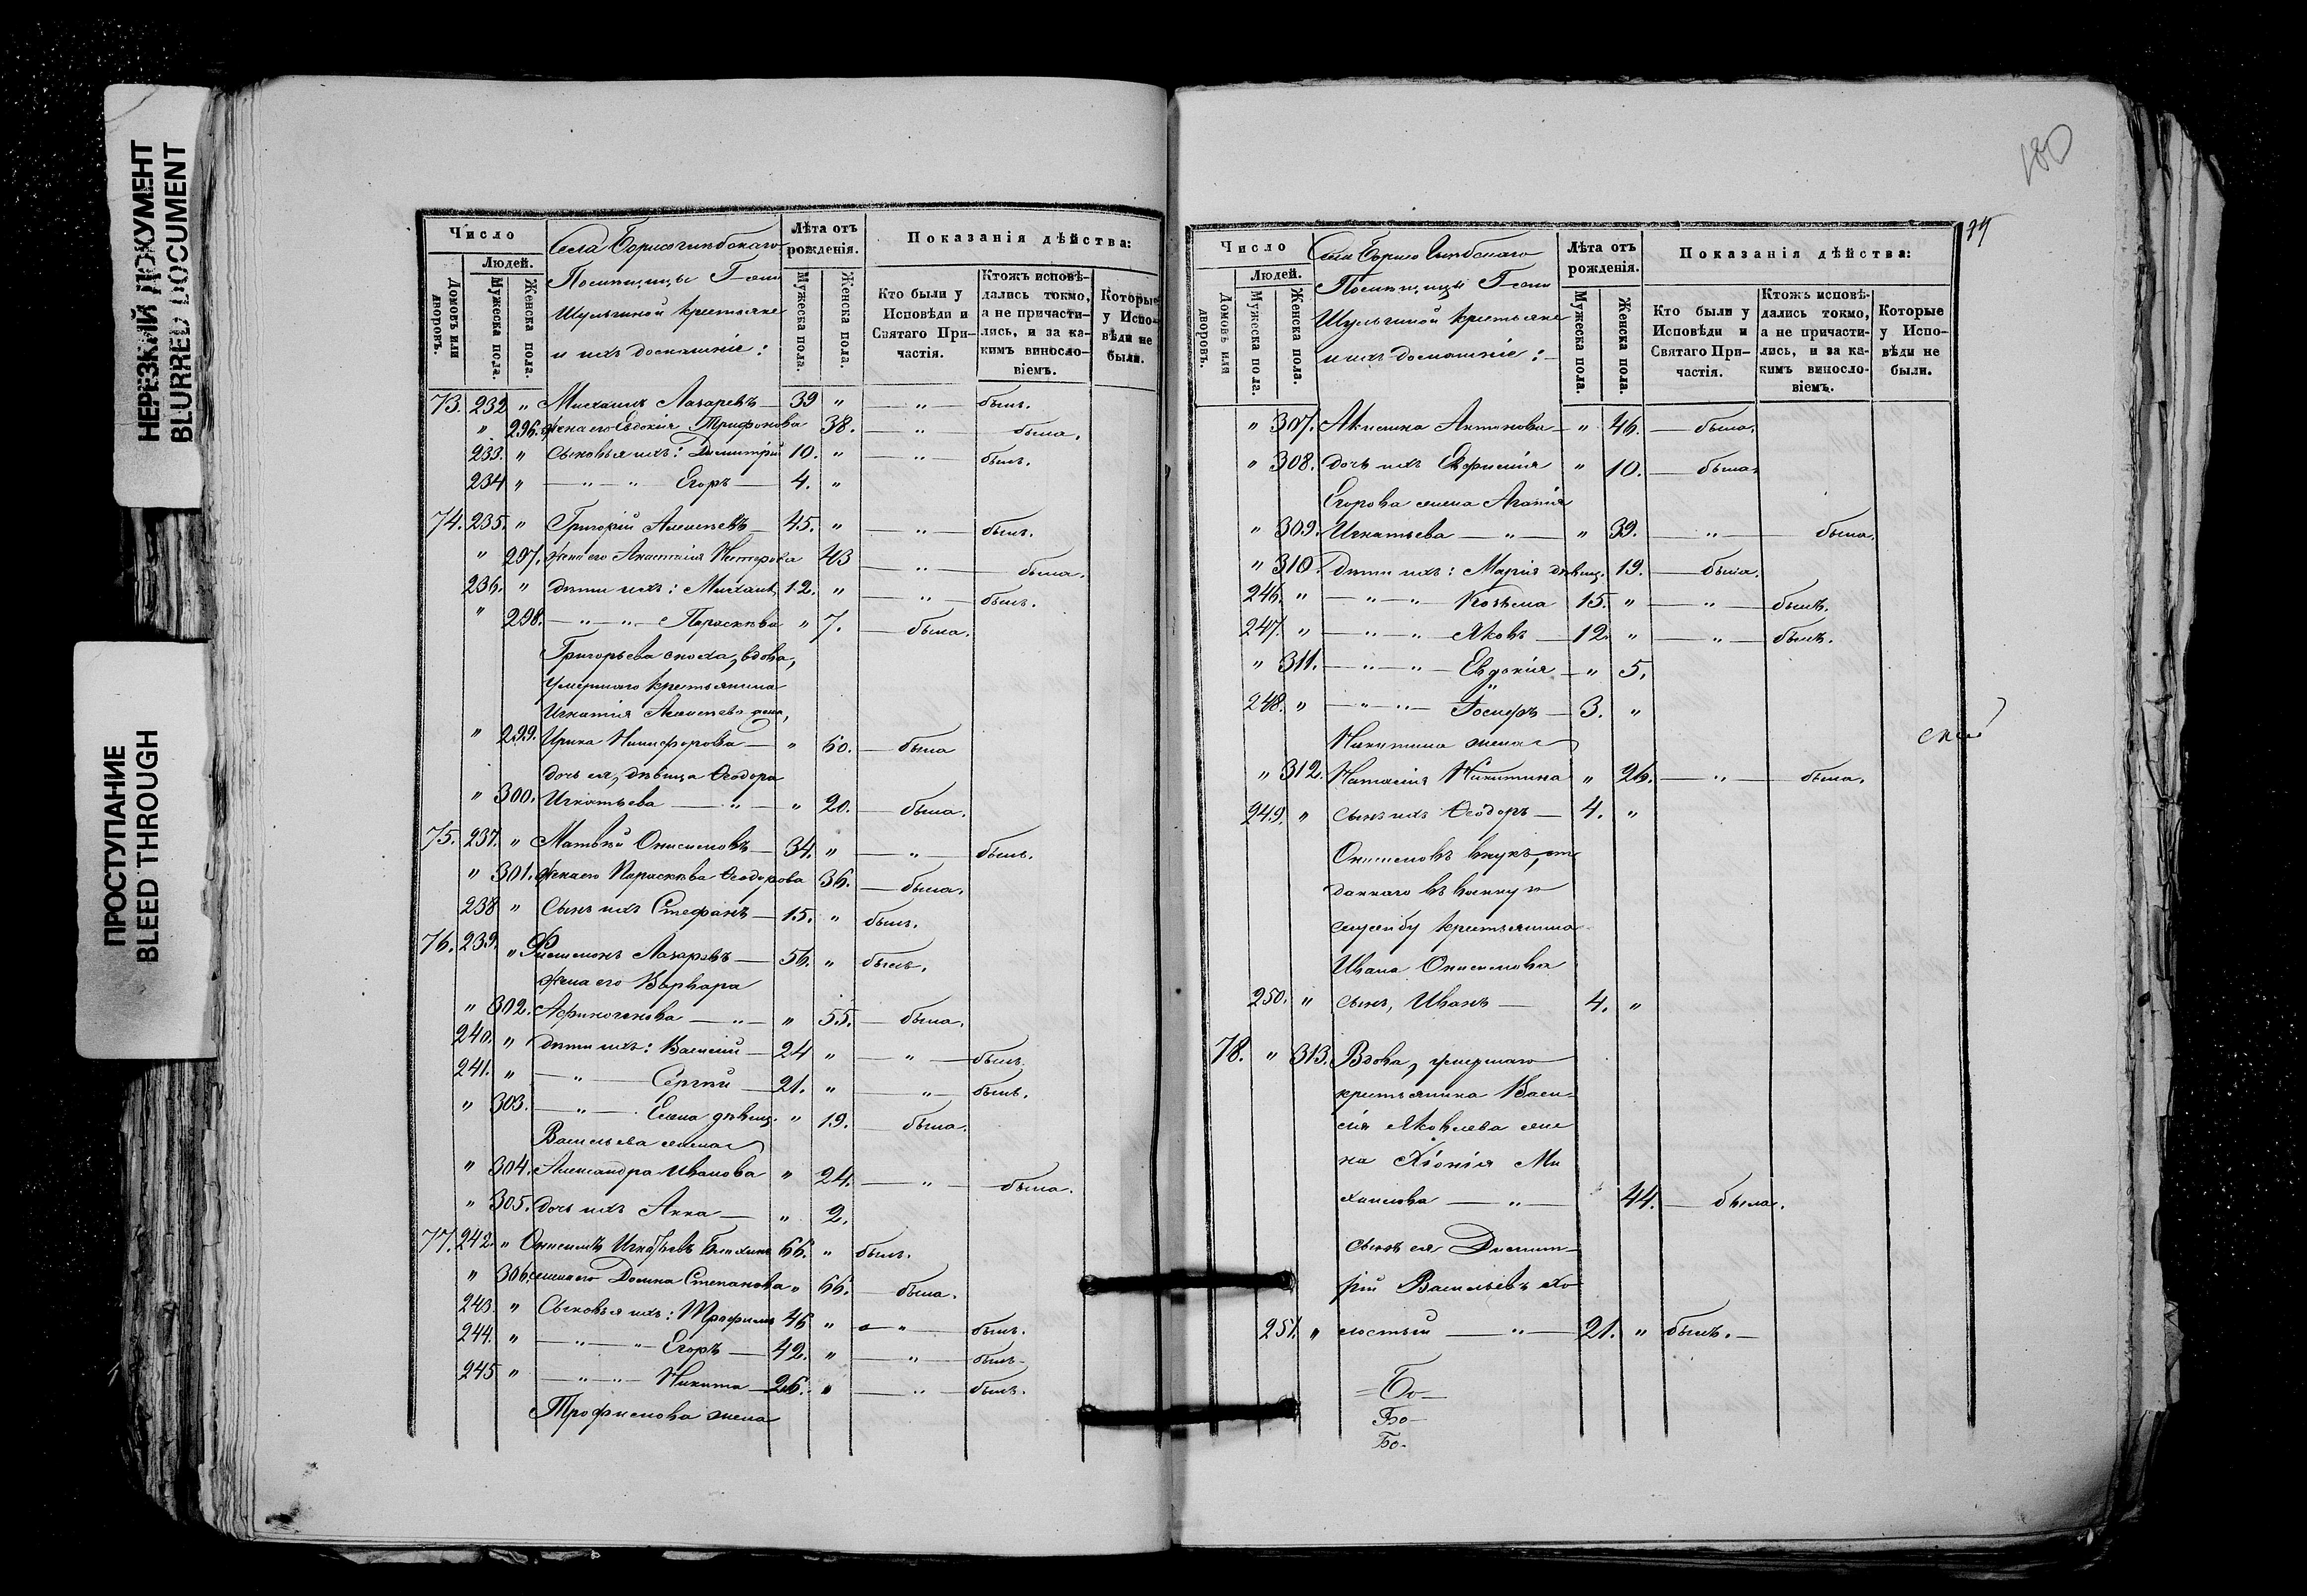 НЕРЕЗКИЙ ДОКУМЕНТ
BLURRED DOCUMENT
ПРОСТУПАНИЕ
BLEED THROUGH
Число
Людей.
Домовъ или дворовъ.
Мужеска пола.
Женска пола.
Села Борисоглѣбскаго
Помѣщицы Г-жи
Шульгиной крестьяне
и ихъ домашніе:
Лѣта отъ рожденія.
Мужеска пола.
Женска пола.
Показанія дѣйства:
Кто были у Исповѣди и Святаго Причастія.
Ктожъ исповѣдались токмо, а не причастились, и за какимъ винословіемъ.
Которые у Исповѣди не были.
73. 232 " Михаилъ Лазаревъ — 39 " — " — былъ.
" 296. жена его Евдокія Трифонова 38. — " была.
233. " Сыновья ихъ: Димитрій 10. " — " — былъ.
234 " — " — " Егоръ — 4. "
74. 235. " Григорій Алексѣевъ — 45. " — " — былъ.
" 297. жена его Анастасія Нестерова 43 — " — была.
236. " дѣти ихъ: Михаилъ 12. " — " — былъ.
" 298. — " — " — Параскѣва " 7. — была.
Григорьева сноха, вдова,
умершаго крестьянина
Игнатія Алексѣева жена,
" 299. Ирина Никифорова — " 60. — была
дочь ея, дѣвица Ѳеодора
" 300. Игнатьева — " — " 20. — была.
75. 237. " Матвѣй Онисимовъ — 34. " — " — былъ.
" 301. жена его Параскѣва Ѳеодорова 36. — была.
238 " Сынъ ихъ Стефанъ — 15. " былъ.
76. 239. " Филимонъ Лазаревъ — 56. " былъ.
жена его Варвара
" 302. Афиногенова — " — " 55. — была.
240. " дѣти ихъ: Василій — 24 " — " — былъ.
241. " — " — Сергій — 21. " — " — былъ.
" 303. — " — Елена дѣвиц. " 19. — была.
Васильева жена
" 304. Александра Иванова " 24. — " — была.
" 305. дочь ихъ Анна — " 2.
77. 242. " Онисимъ Игнатьевъ 66. " былъ.
" 306. жена его Домна Степанова " 66. — была.
243. " Сыновья ихъ: Трофимъ 46 " — " — былъ.
244. " — " — " — Егоръ — 42. " — " — былъ.
245 " — " — " — Никита — 26. " — " — былъ.
Трофимова жена
180
Число
Людей.
Домовъ или дворовъ.
Мужеска пола.
Женска пола.
Села Борисоглѣбскаго
Помѣщицы Г-жи
Шульгиной крестьяне
и ихъ домашніе:
Лѣта отъ рожденія.
Мужеска пола.
Женска пола.
Показанія дѣйства:
Кто были у Исповѣди и Святаго Причастія.
Ктожъ исповѣдались токмо, а не причастились, и за какимъ винословіемъ.
Которые у Исповѣди не были.
" 307. Акилина Антонова — " 46. — была.
" 308. дочь ихъ Евфимія " 10. — была.
Егорова жена Агафія
" 309. Игнатьева — " — " 39. — " — была.
" 310. Дѣти ихъ: Марія дѣвиц. 19. — была.
246. " — " — " — Козьма 15. " — " — былъ.
247. " — " — " Яковъ — 12. " — " — былъ.
" 311. — " — " — Евдокія — " 5.
248. " — " — " — Іосифъ — 3. "
Никитина жена
" 312. Наталія Никитина " 26. — " — была.
249. " Сынъ ихъ Ѳеодоръ — 4. "
Онисимовъ внукъ, от
даннаго въ военную
службу крестьянина
Ивана Онисимова
250. " сынъ, Иванъ — 4. "
78. " 313. Вдова, умершаго
крестьянина Васи-
лія Яковлева же
на Хіонія Ми
хаилова — " — 44. — была.
Сынъ ея Димит-
рій Васильевъ хо
251. " лостый — " — 21. " былъ. —
Бо-
Бо-
Бо-